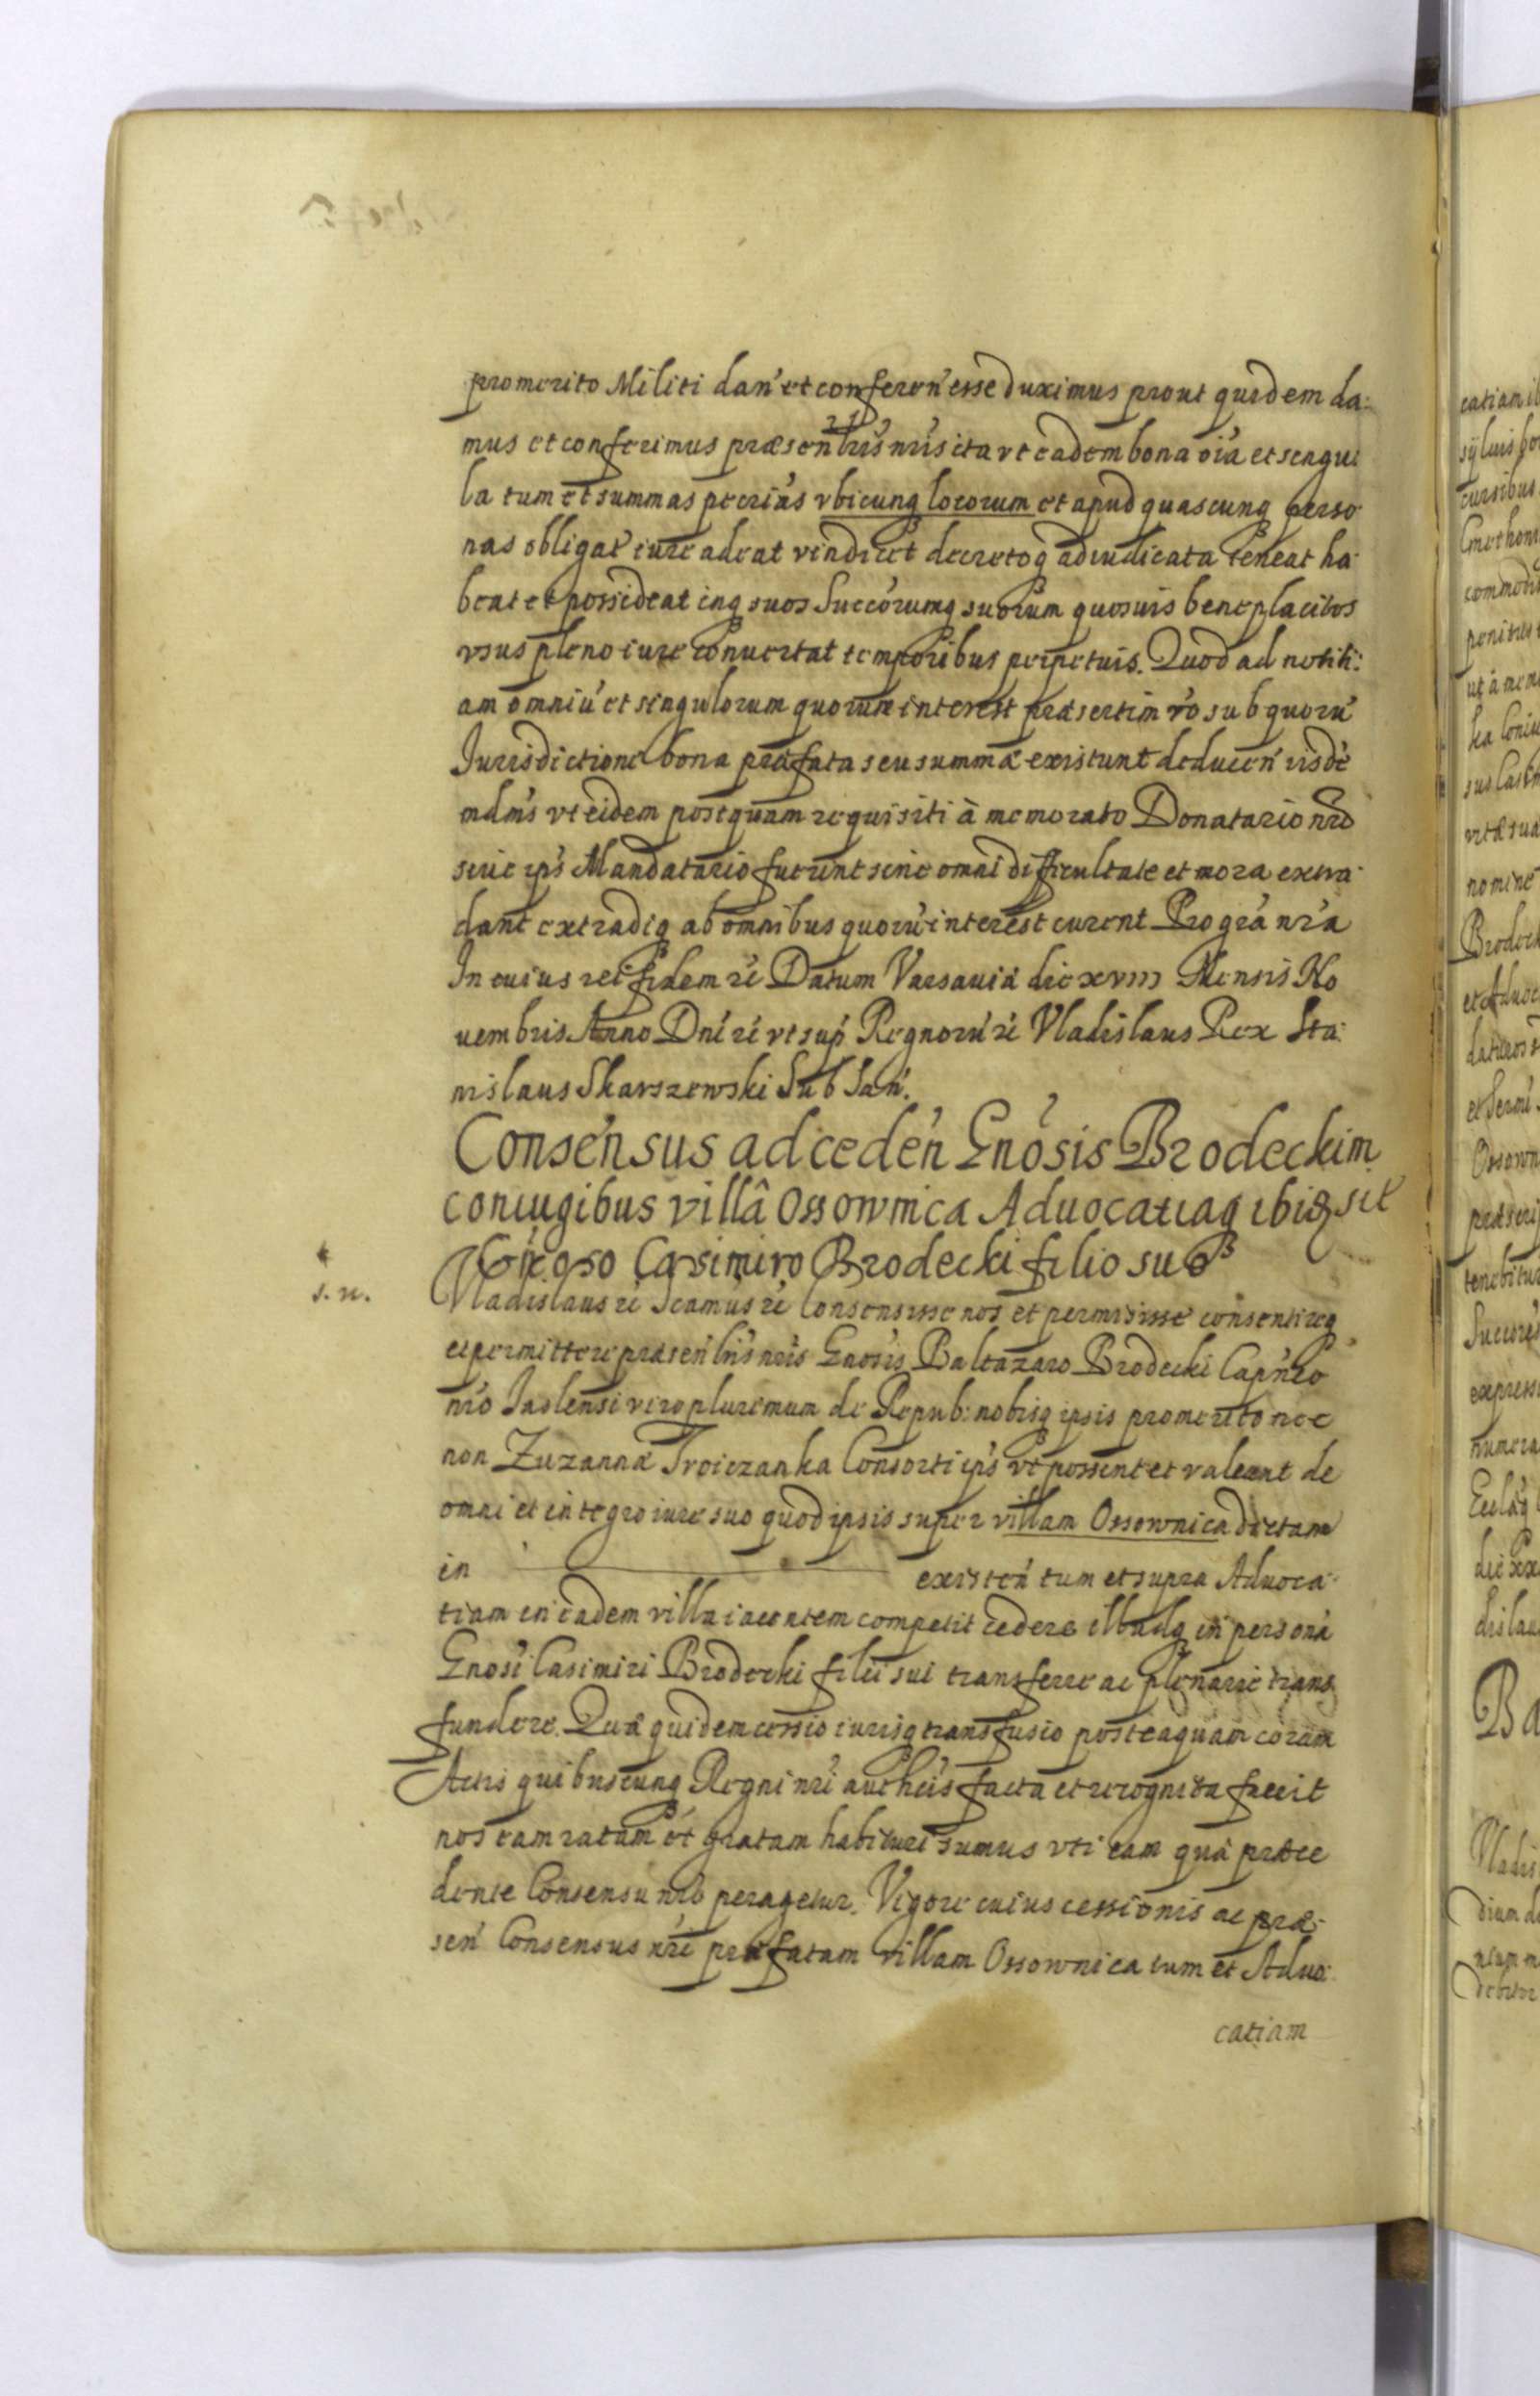 promerito Militi dan' et conferen' esse duximus prout quidem da:
mus et conferimus præsen' lris nris ita vt eadem bona oi'a et singu
la tum et summas pecrias vbicunq locorum et apud quascunq perso
nas obligat' iure adeat vindicet decretoq adiudicata teneat ha
beat et possideat inq suos Succorumq suorum quosuis beneplacitos
vsus pleno iure conuertat temporibus perpetuis. Quod ad notiti:
am omniu' et singulorum quorum interest præsertim vo sub quoru'
Iurisdictione bona præfata seu summæ existunt deducen' iisde'
mdms vt eidem postquam requisiti à memorato Donatario nro
siue ips Mandatario fuerint sine omni difficultate et mora extra
dant extradiq ab omnibus quoru' interest curent Pro gra' nra
In cuius rei fidem zc Datum Varsauiæ die xviii Mensis No
uembris Anno Dni zc vt sup' Regnoru' zc Vladislaus Rex Sta:
nislaus Skarszewski Sub San'.
Consensus ad ceden' Gnosis Brodeckim
coniugibus villâ Ossownica Aduocatiaq ibiq sit
Gnoso Casimiro Brodecki filio suo
s. n.
Vladislaus zc Scamus zc Consensisse nos et permisisse consentireq
et permittere præsen' lris nris Gnosis Baltazaro Brodecki Capneo
nro Jaslensi viro plurimum de Repub: nobisq ipsis promerito nec
non Zuzannæ Troiczanka Consorti ips vt possint et valeant de
omni et integro iure suo quod ipsis super villam Ossownica dictam
in existen' tum et supra Aduoca:
tiam in eadem villa iacentem competit cedere illudq in persona'
Gnosi Casimiri Brodecki filii sui transferre ac plenarie trans
fundere. Quæ quidem cessio iurisq transfusio posteaquam coram
Actis quibuscunq Regni nri authcis facta et recognita fuerit
nos eam ratam et gratam habituri sumus vti eam quæ præce
dente Consensu nro peragetur. Vigore cuius cessionis ac præ:
sen' Consensus nri præfatam villam Ossownica tum et Aduo:
catiam